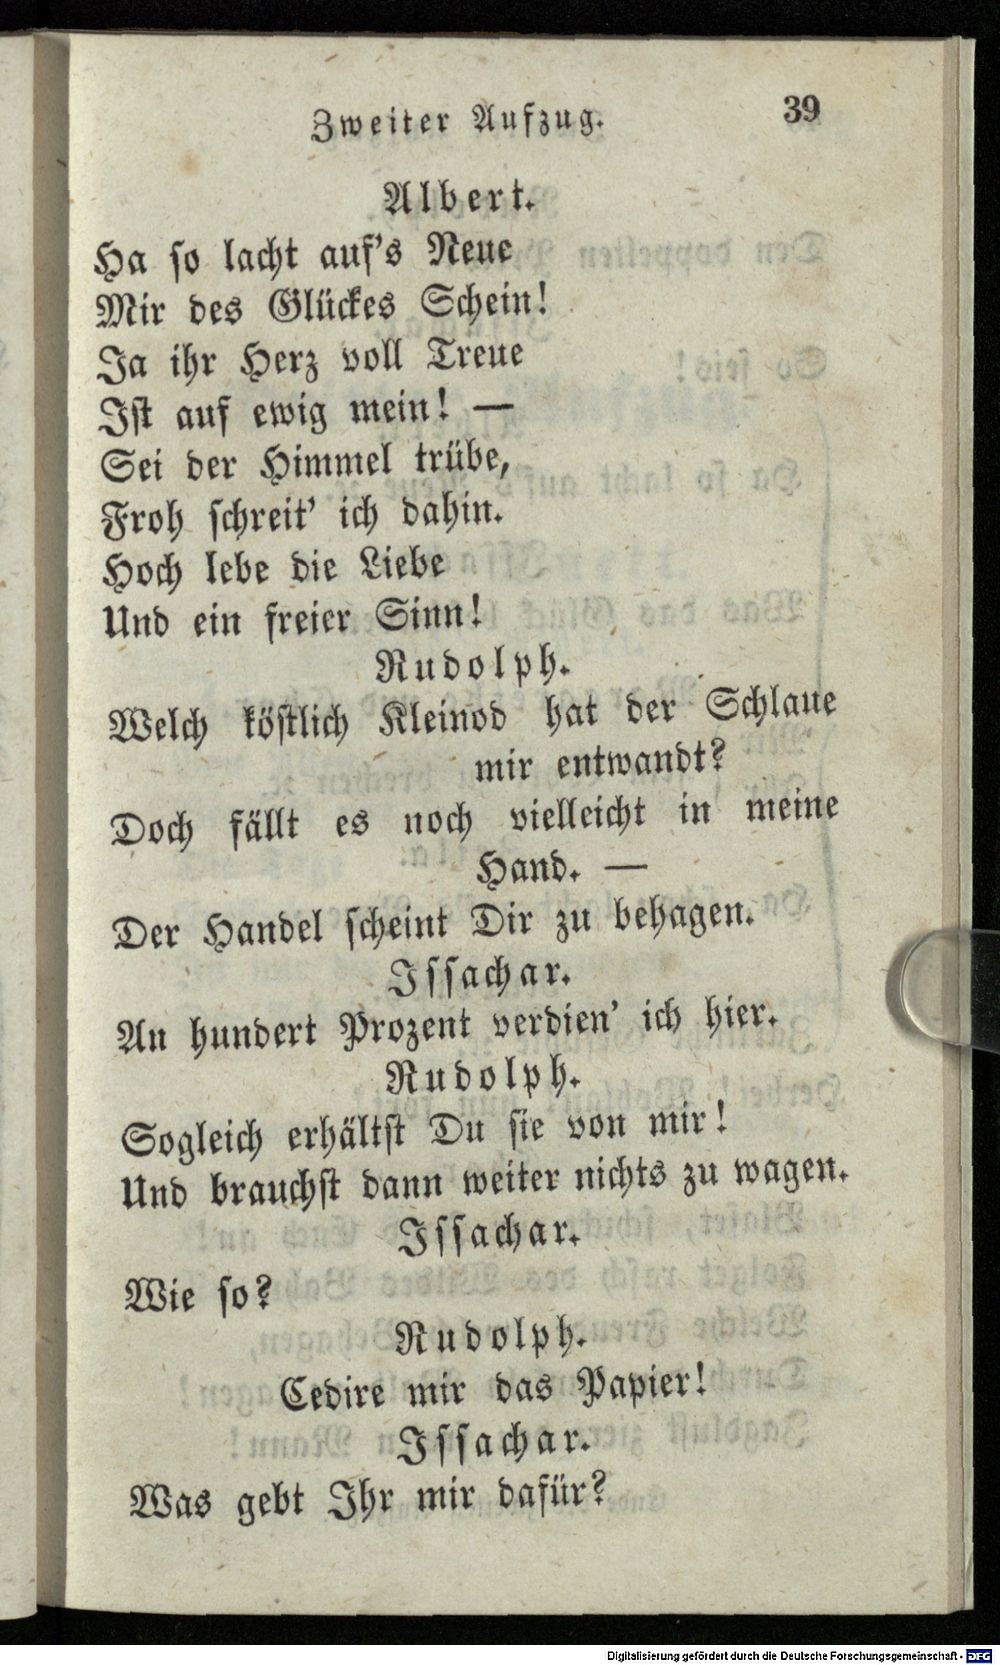 Zweiter Aufzug.
39
Albert.
Ha so lacht auf's Neue
Mir des Glückes Schein!
Ja ihr Herz voll Treue
Ist auf ewig mein! —
Sei der Himmel trübe,
Froh schreit' ich dahin.
Hoch lebe die Liebe
Und ein freier Sinn!
Rudolph.
Welch köstlich Kleinod hat der Schlaue
mir entwandt?
Doch fällt es noch vielleicht in meine
Hand. —
Der Handel scheint Dir zu behagen.
Issachar.
An hundert Prozent verdien' ich hier.
Rudolph.
Sogleich erhältst Du sie von mir!
Und brauchst dann weiter nichts zu wagen.
Issachar.
Wie so?
Rudolph.
Cedire mir das Papier!
Issachar.
Was gebt Ihr mir dafür?
Digitalisierung gefördert durch die Deutsche Forschungsgemeinschaft - DFG